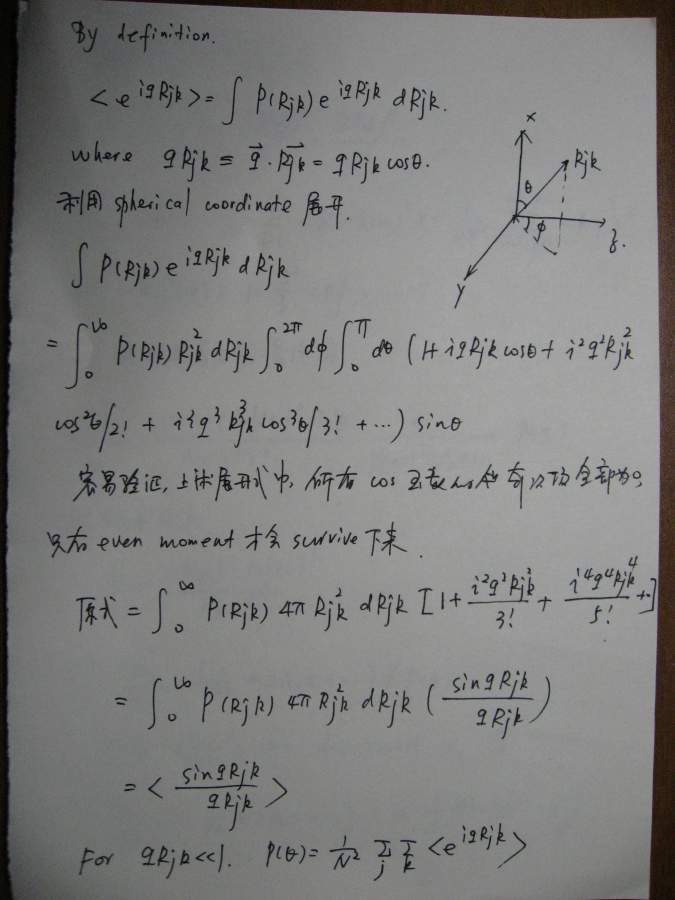 By definition.
< e^{iqRjk} > = ∫ P(Rjk) e^{iqRjk} dRjk.
where qRjk ≡ \vec{q} · \vec{Rjk} = qRjk cosθ.
利用 spherical coordinate 展开.
x
Rjk
θ
φ
z.
y
∫ P(Rjk) e^{iqRjk} dRjk
= ∫_0^∞ P(Rjk) Rjk^2 dRjk ∫_0^{2π} dφ ∫_0^π dθ ( 1 + iqRjk cosθ + i^2 q^2 Rjk^2
cos^2θ/2! + i^3 q^3 Rjk^3 cos^3θ/3! + ··· ) sinθ
容易验证, 上述展开式中, 所有 cos 函数的奇次项全部为0,
只有 even moment 才会 survive 下来.
原式 = ∫_0^∞ P(Rjk) 4π Rjk^2 dRjk [ 1 + \frac{i^2 q^2 Rjk^2}{3!} + \frac{i^4 q^4 Rjk^4}{5!} + ]
= ∫_0^∞ P(Rjk) 4π Rjk^2 dRjk ( \frac{sin qRjk}{qRjk} )
= < \frac{sin qRjk}{qRjk} >
For qRjk << 1. P(θ) = \frac{1}{N^2} Σ_j Σ_k < e^{iqRjk} >